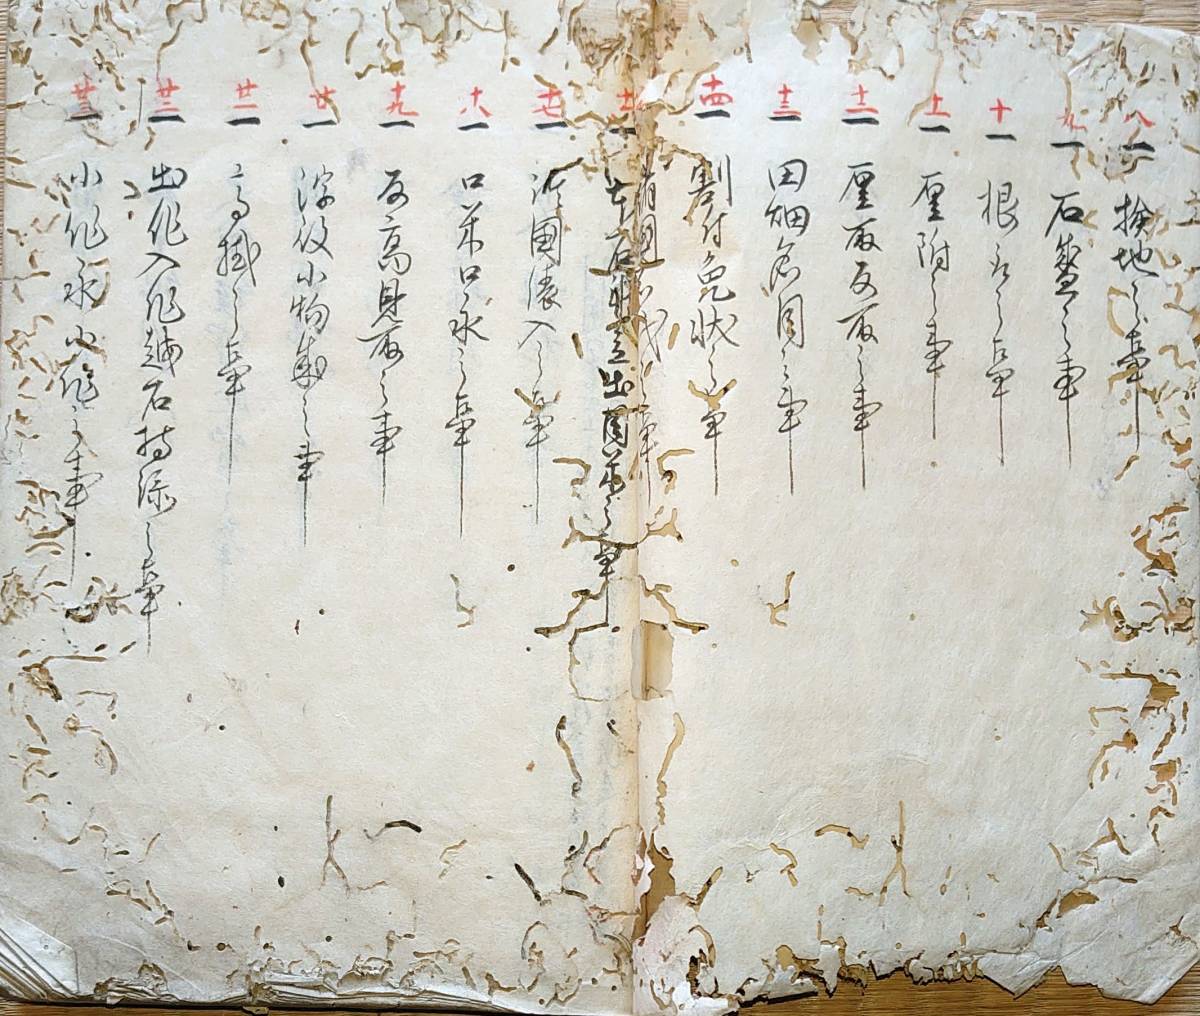 八 一 検地之事
九 一 石盛之事
十 一 根取之事
十一 一 厘附之事
十二 一 厘取反取之事
十三 一 田畑名目之事
十四 一 割付免状之事
之事
一 石 立出目米之事
十七 一 諸国俵入之事
十八 一 口米口永之事
十九 一 反高見取之事
廿 一 浮役小物成之事
廿一 一 高掛之事
廿二 一 出作入作越石持添之事
廿三 一 小作永小作之事